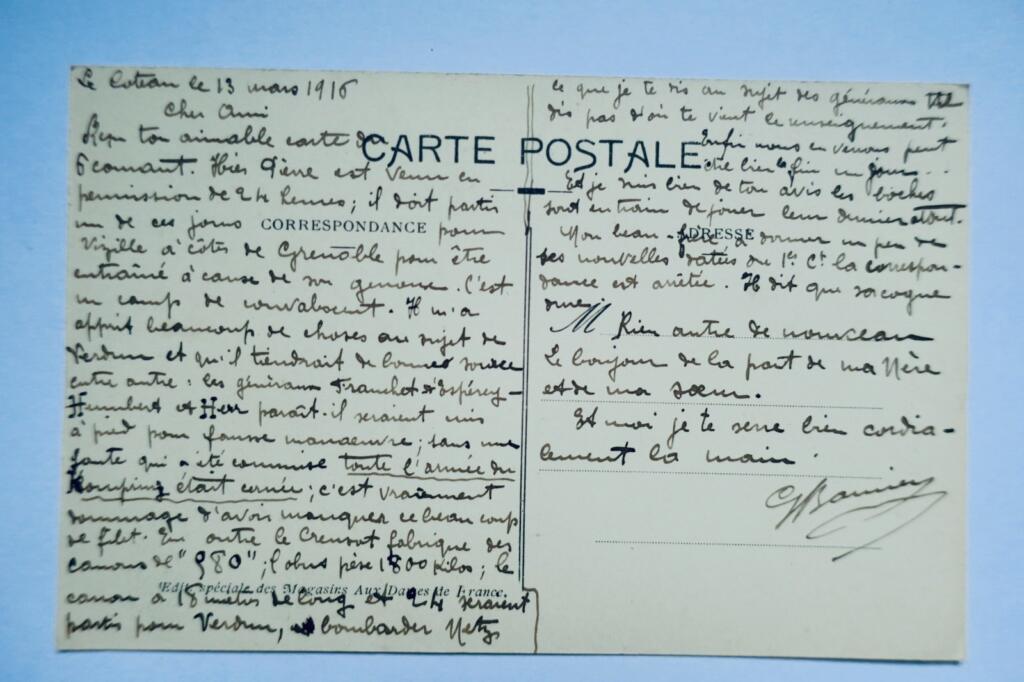 Le Coteau le 13 mars 1916
Cher Ami
Reçu ton aimable carte du
6 courant. Hier Pierre est venu en
permission de 24 heures ; il doit partir
un de ces jours pour
Vizille à côtés de Grenoble pour être
entraîné à cause de son genoux. C'est
un camps de convalescent. Il m'a
apprit beaucoups de choses au sujet de
Verdun et qu'il tiendrait de bonnes source
entre autre : les généraux Franchet d'Espérey -
Humbert et Herr paraît-il seraient mis
à pied pour fausse manœuvre ; sans une
faute qui a été commise toute l'armée du
Kronprinz était cernée ; c'est vraiment
dommage d'avoir manquer ce beau coup
de filet. En outre le Creusot fabrique des
canons de " " ; l'obus pèse 1800 kilos ; le
canon a 18 mètres de long et 24 seraient
partis pour Verdun, bombarder Metz
CARTE POSTALE
CORRESPONDANCE
ADRESSE
Edit. spéciale des Magasins Aux Dames de France.
ce que je te dis au sujet des généraux ne
dis pas d'où te vient le renseignement.
Enfin nous en verrons peut
être bien la fin un jour...
Et je suis bien de ton avis les boches
sont en train de jouer leur dernier atout.
Mon beau-frère a donner un peu de
ses nouvelles datées du 1er Ct la correspon-
dance est arrêtée. Il dit que sa cogne
dur.
M
Rien autre de nouveau
Le bonjour de la part de ma Mère
et de ma sœur.
Et moi je te serre bien cordia-
lement la main.